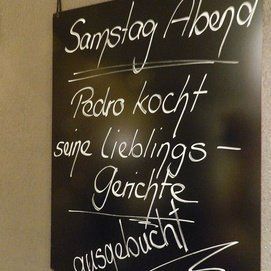 Samstag Abend
Pedro kocht
seine Lieblings-
Gerichte
ausgebucht